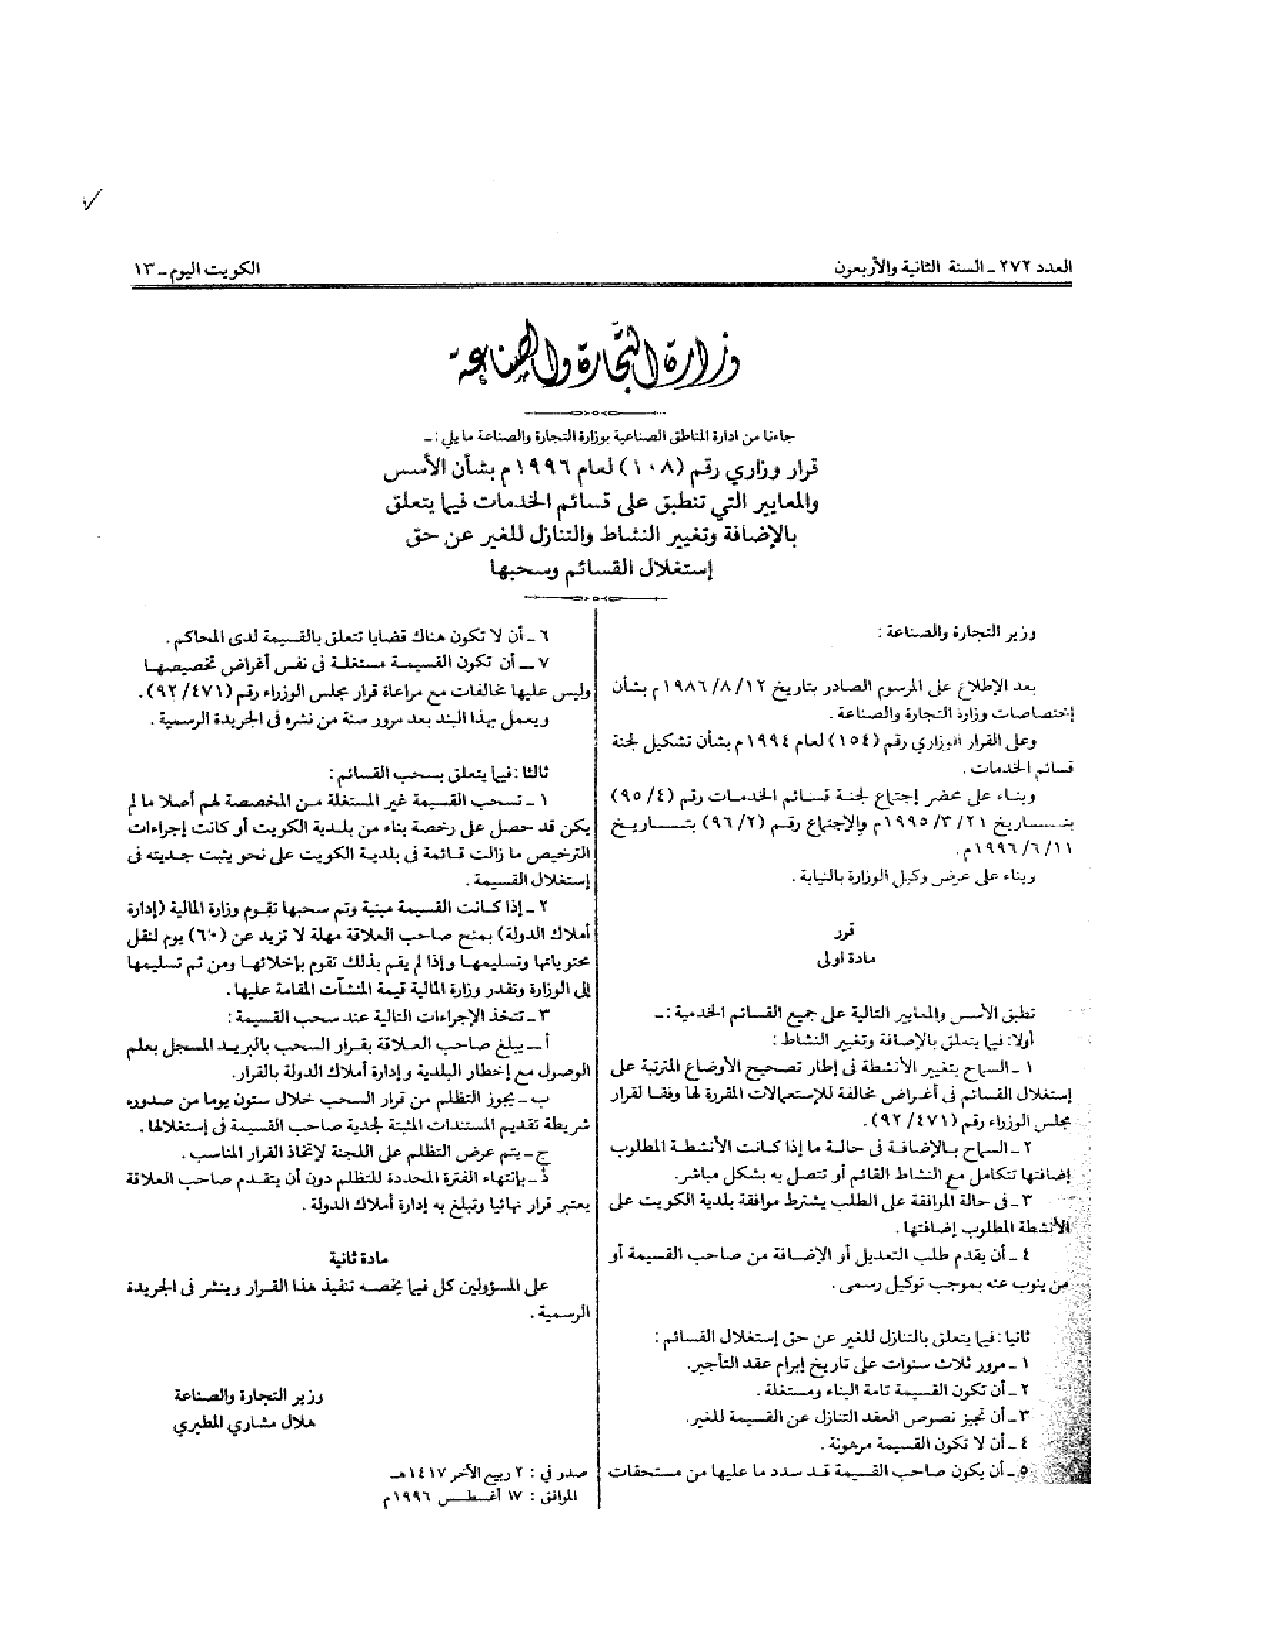 العدد ٢٧٢ - السنة الثانية والأربعون
الكويت اليوم - ١٣
وزارة التجارة والصناعة
جاءنا من ادارة المناطق الصناعية بوزارة التجارة والصناعة مايلي :-
قرار وزاري رقم (١٠٨) لعام ١٩٩٦م بشأن الأسس
والمعايير التي تنطبق على قسائم الخدمات فيما يتعلق
بالإضافة وتغيير النشاط والتنازل للغير عن حق
إستغلال القسائم وسحبها
وزير التجارة والصناعة :
بعد الإطلاع على المرسوم الصادر بتاريخ ١٢/ ٨/ ١٩٨٦م بشأن
إختصاصات وزارة التجارة والصناعة .
وعلى القرار الوزاري رقم (١٥٤) لعام ١٩٩٤م بشأن تشكيل لجنة
قسائم الخدمات .
وبناء على محضر إجتماع لجنة قسائم الخدمات رقم (٤/ ٩٥)
بتاريخ ٢١/ ٣/ ١٩٩٥م والاجتماع رقم (٢/ ٩٦) بتاريخ
١١/ ٦/ ١٩٩٦م .
وبناء على عرض وكيل الوزارة بالنيابة .
قرر
مادة اولى
تطبق الأسس والمعايير التالية على جميع القسائم الخدمية :-
أولا: فيما يتعلق بالإضافة وتغيير النشاط :
١ - السماح بتغيير الأنشطة فى إطار تصحيح الأوضاع المترتبة على
إستغلال القسائم فى أغراض مخالفة للإستعمالات المقررة لها وفقا لقرار
مجلس الوزراء رقم (٤٧١/ ٩٢).
٢ - السماح بالإضافة فى حالة ما إذا كانت الأنشطة المطلوب
إضافتها تتكامل مع النشاط القائم أو تتصل به بشكل مباشر.
٣ - فى حالة الموافقة على الطلب يشترط موافقة بلدية الكويت على
الأنشطة المطلوب إضافتها .
٤ - أن يقدم طلب التعديل أو الإضافة من صاحب القسيمة أو
من ينوب عنه بموجب توكيل رسمى .
ثانيا : فيما يتعلق بالتنازل للغير عن حق إستغلال القسائم :
١ - مرور ثلاث سنوات على تاريخ إبرام عقد التأجير.
٢ - أن تكون القسيمة تامة البناء ومستغلة .
٣ - أن تجيز نصوص العقد التنازل عن القسيمة للغير.
٤ - أن لا تكون القسيمة مرهونة .
٥ - أن يكون صاحب القسيمة قد سدد ما عليها من مستحقات
٦ - أن لا تكون هناك قضايا تتعلق بالقسيمة لدى المحاكم .
٧ - أن تكون القسيمة مستغلة فى نفس أغراض تخصيصها
وليس عليها مخالفات مع مراعاة قرار مجلس الوزراء رقم (٤٧١/ ٩٢).
ويعمل بهذا البند بعد مرور سنة من نشره فى الجريدة الرسمية .
ثالثا : فيما يتعلق بسحب القسائم :
١ - تسحب القسيمة غير المستغلة من المخصصة لهم أصلا ما لم
يكن قد حصل على رخصة بناء من بلدية الكويت أو كانت إجراءات
الترخيص ما زالت قائمة فى بلدية الكويت على نحو يثبت جديته فى
إستغلال القسيمة .
٢ - إذا كانت القسيمة مبنية وتم سحبها تقوم وزارة المالية (إدارة
أملاك الدولة) بمنح صاحب العلاقة مهلة لا تزيد عن (٦٠) يوم لنقل
محتوياتها وتسليمها وإذا لم يقم بذلك تقوم بإخلائها ومن ثم تسليمها
إلى الوزارة وتقدر وزارة المالية قيمة المنشآت المقامة عليها .
٣ - تتخذ الإجراءات التالية عند سحب القسيمة :
أ - يبلغ صاحب العلاقة بقرار السحب بالبريد المسجل بعلم
الوصول مع إخطار البلدية وإدارة أملاك الدولة بالقرار.
ب - يجوز التظلم من قرار السحب خلال ستون يوما من صدوره
شريطة تقديم المستندات المثبتة لجدية صاحب القسيمة فى إستغلالها .
ج - يتم عرض التظلم على اللجنة لاتخاذ القرار المناسب .
د - بإنتهاء الفترة المحددة للتظلم دون أن يتقدم صاحب العلاقة
يعتبر قرار نهائيا وتبلغ به إدارة أملاك الدولة .
مادة ثانية
على المسؤولين كل فيما يخصه تنفيذ هذا القرار وينشر فى الجريدة
الرسمية .
وزير التجارة والصناعة
هلال مشاري المطيري
صدر في : ٢ ربيع الآخر ١٤١٧هـ
الموافق : ١٧ أغسطس ١٩٩٦م